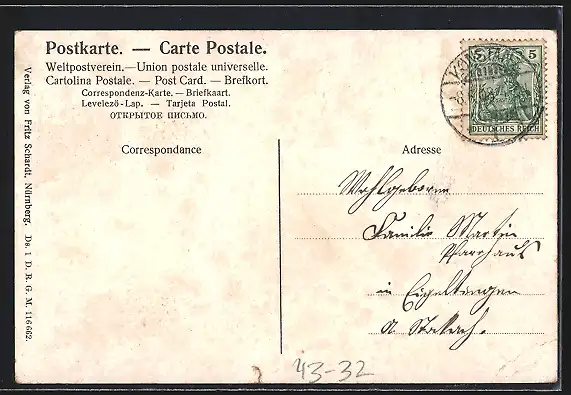 Postkarte. — Carte Postale.
Weltpostverein. — Union postale universelle.
Cartolina Postale. — Post Card. — Brefkort.
Correspondenz-Karte. — Briefkaart.
Levelező-Lap. — Tarjeta Postal.
ОТКРЫТОЕ ПИСЬМО.
Correspondance
Adresse
5
DEUTSCHES REICH
Wohlgeboren
Familie Martin
Pfarrhaus
in Eigeltingen
A. Stockach.
Verlag von Fritz Schardt, Nürnberg. Ds. 1 D. R. G. M. 116662.
43-32